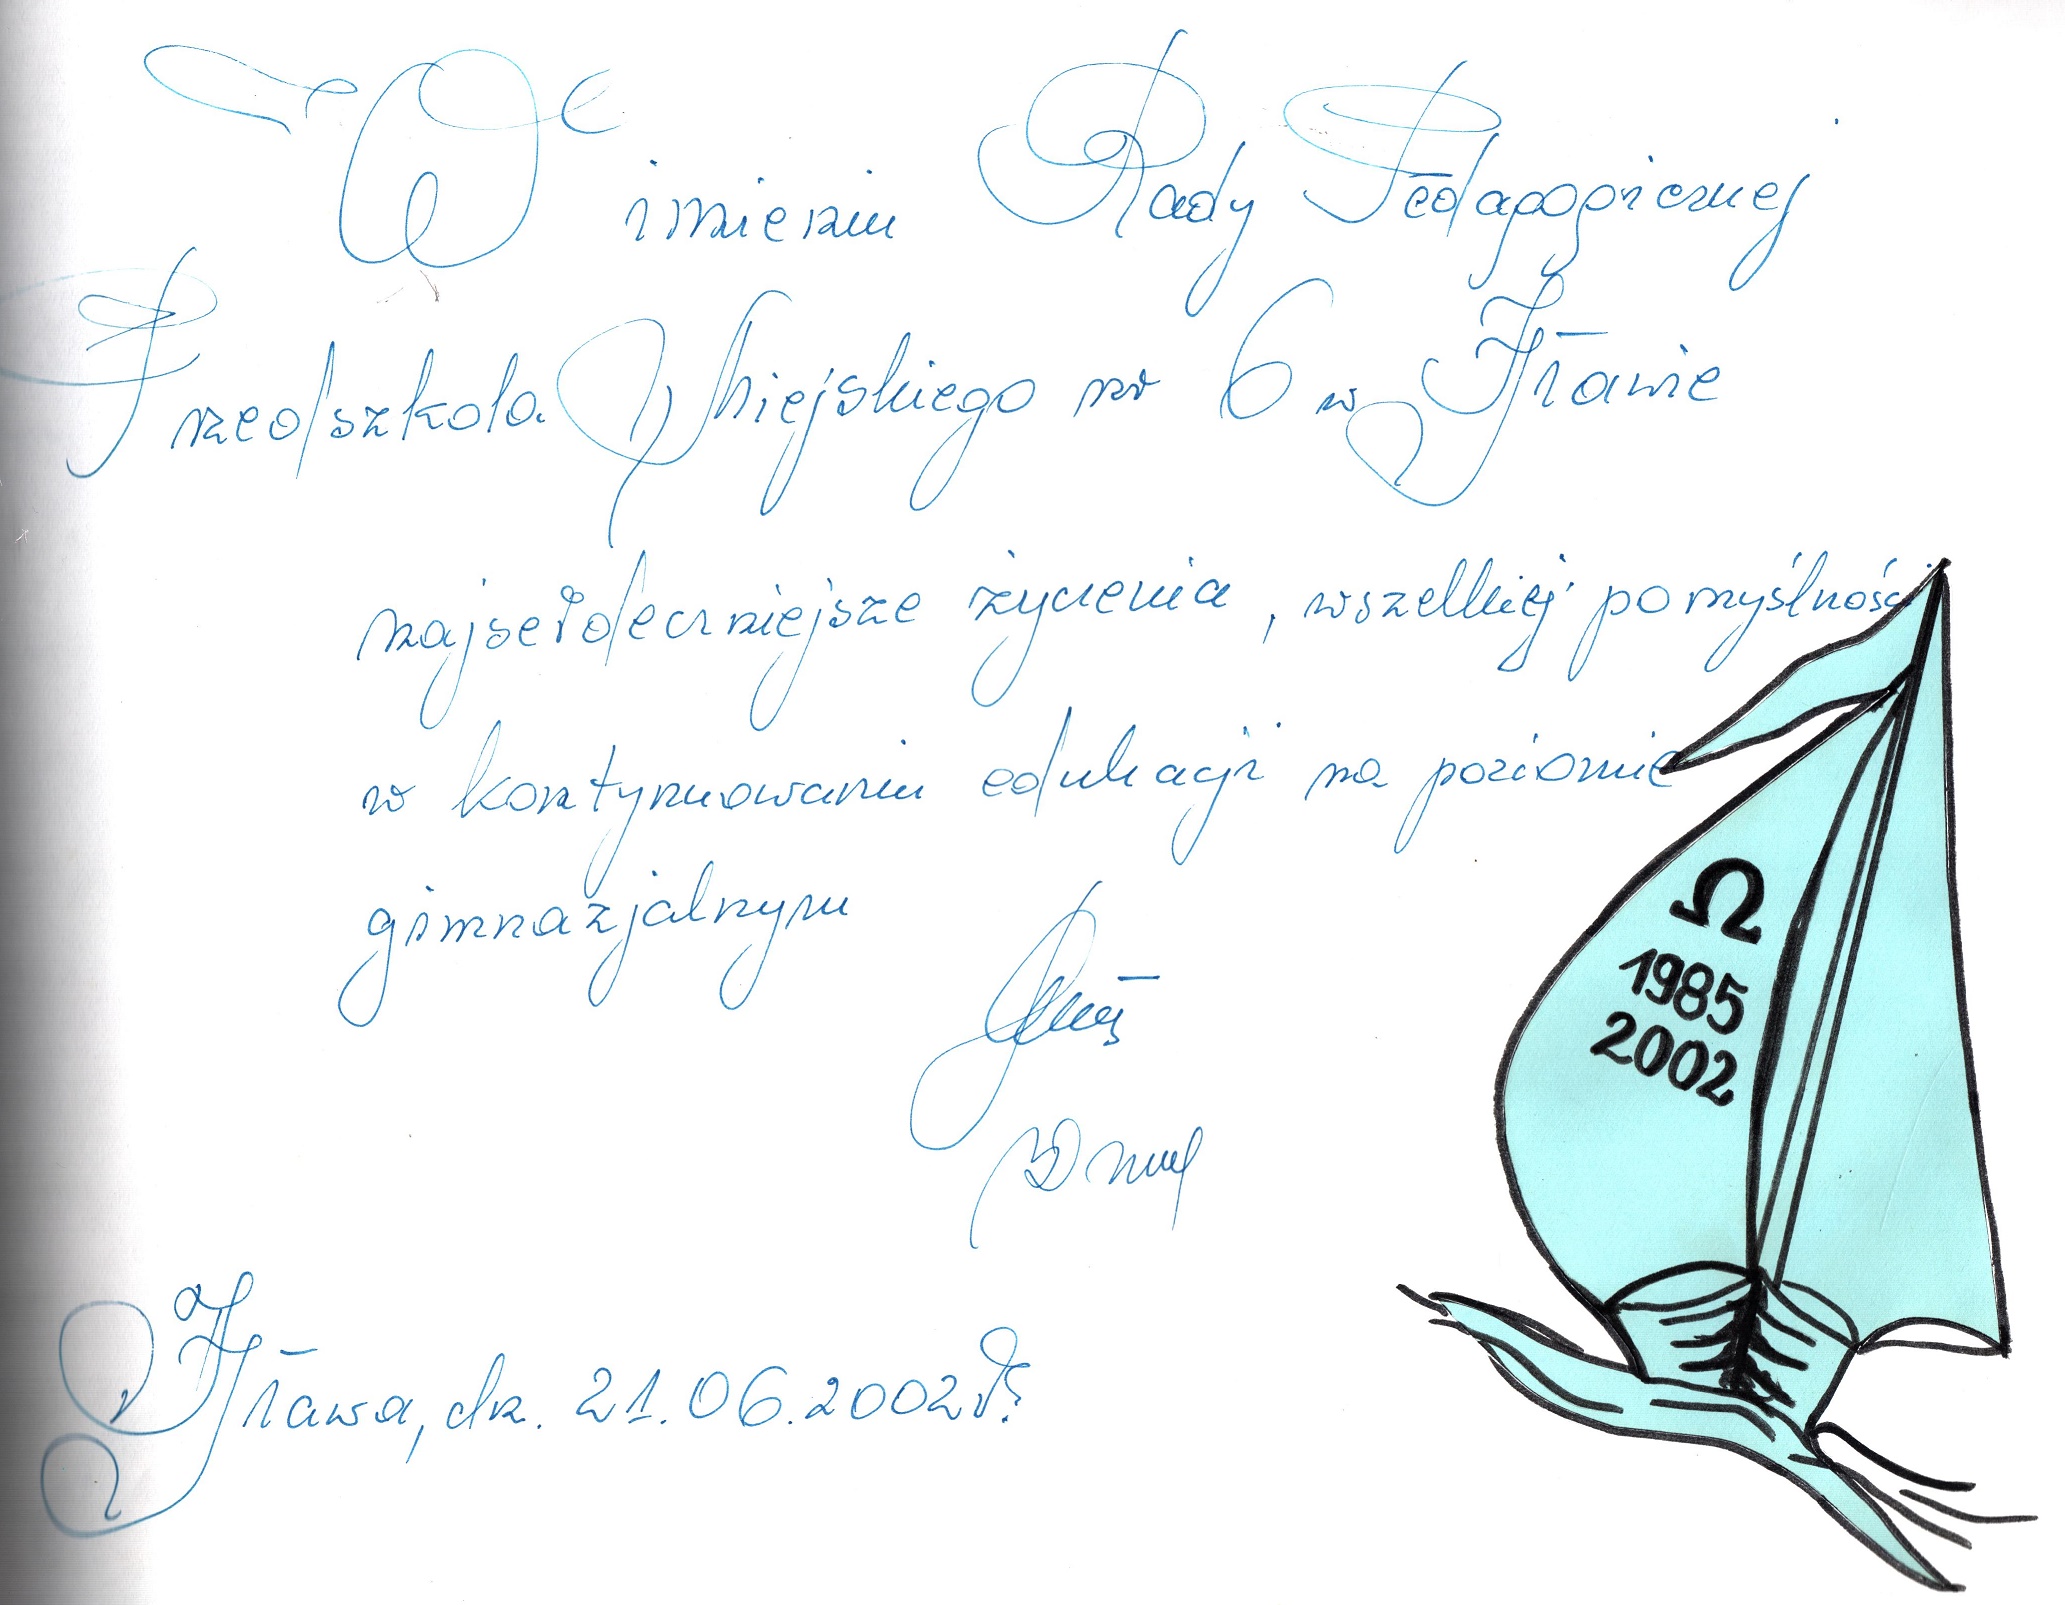 W imieniu Rady Pedagogicznej
Przedszkola Miejskiego nr 6 w Iławie
najserdeczniejsze życzenia, wszelkiej pomyślności
w kontynuowaniu edukacji na poziomie
gimnazjalnym
Ω
1985
2002
Iława, dn. 21.06.2002r.